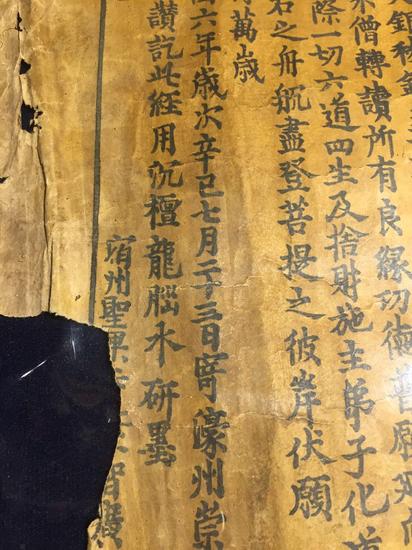 僧轉讀所有良緣功德普願
際一切六道四生及捨財施主弟子化
之舟航盡登菩提之彼岸伏願
萬歲
六年歲次辛巳七月二十三日寄濠州崇
讚訖此經用沉檀龍腦水研墨
宿州聖果